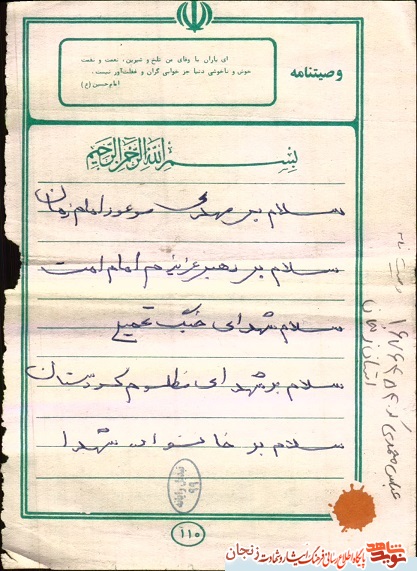 ای یاران با وفای من تلخ و شیرین، نعمت و نقمت
خوشی و ناخوشی دنیا جز خوابی گران و غفلت‌آور نیست.
امام حسین (ع)
وصیتنامه
بسم الله الرحمن الرحیم
سلام بر مهدی موعود امام زمان
سلام بر رهبر عزیزم امام امت
سلام شهدای جنگ تحمیلی
سلام بر شهدای مظلوم کردستان
سلام بر خانواده شهدا
۱۱۰
استان زنجان
نوید شاهد
پایگاه اطلاع رسانی فرهنگ ایثار و شهادت زنجان